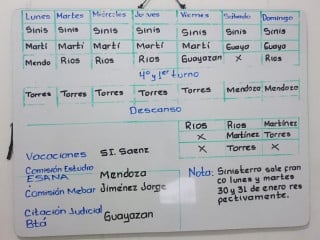 Lunes Martes Miércoles Jueves Viernes Sábado Domingo
Sinis Sinis Sinis Sinis Sinis Sinis Sinis
Martí Martí Martí Martí Martí Guaya Guaya
Mendo Rios Rios Rios Guayazan X Rios
4º y 1er turno
Torres Torres Torres Torres Torres Mendoza Mendoza
Descanso
Rios Rios Martínez
X Martínez Torres
X Torres X
Vacaciones S.I. Saenz
Comisión Estudio
ESANA Mendoza
Comisión Mebar Jiménez Jorge
Citación Judicial
Btá Guayazan
Nota: Sinisterro sale fran
co lunes y martes
30 y 31 de enero res
pectivamente.